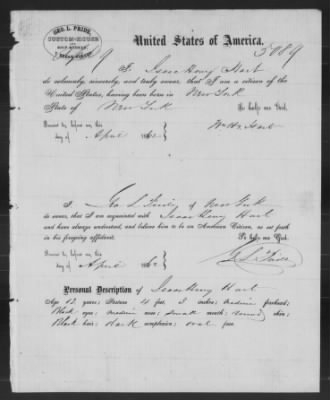 GEO. L. PRIDE,
CUSTOM-HOUSE
United States of America.
5089
I, Isaac Henry Hart
do solemnly, sincerely, and truly swear, that I am a citizen of the
United States, having been born in New York
State of New York So help me God.
Sworn to before me, this
day of April 1862
I, Geo L Pride of New York
do swear, that I am acquainted with Isaac Henry Hart
and have always understood, and believe him to be an American Citizen, as set forth
in his foregoing affidavit. So help me God.
Sworn to before me, this
day of April 1862 G. L. Pride
Personal Description of Isaac Henry Hart
Age years; Stature 4 feet, inches; medium forehead;
Black eyes; medium nose; small mouth; round chin;
Black hair; dark complexion; oval face.